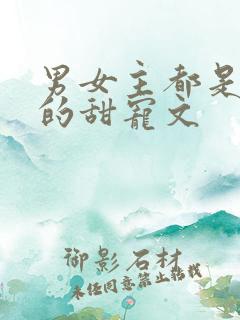 男女主都是
的甜宠文
御影石材
未经同意禁止转载